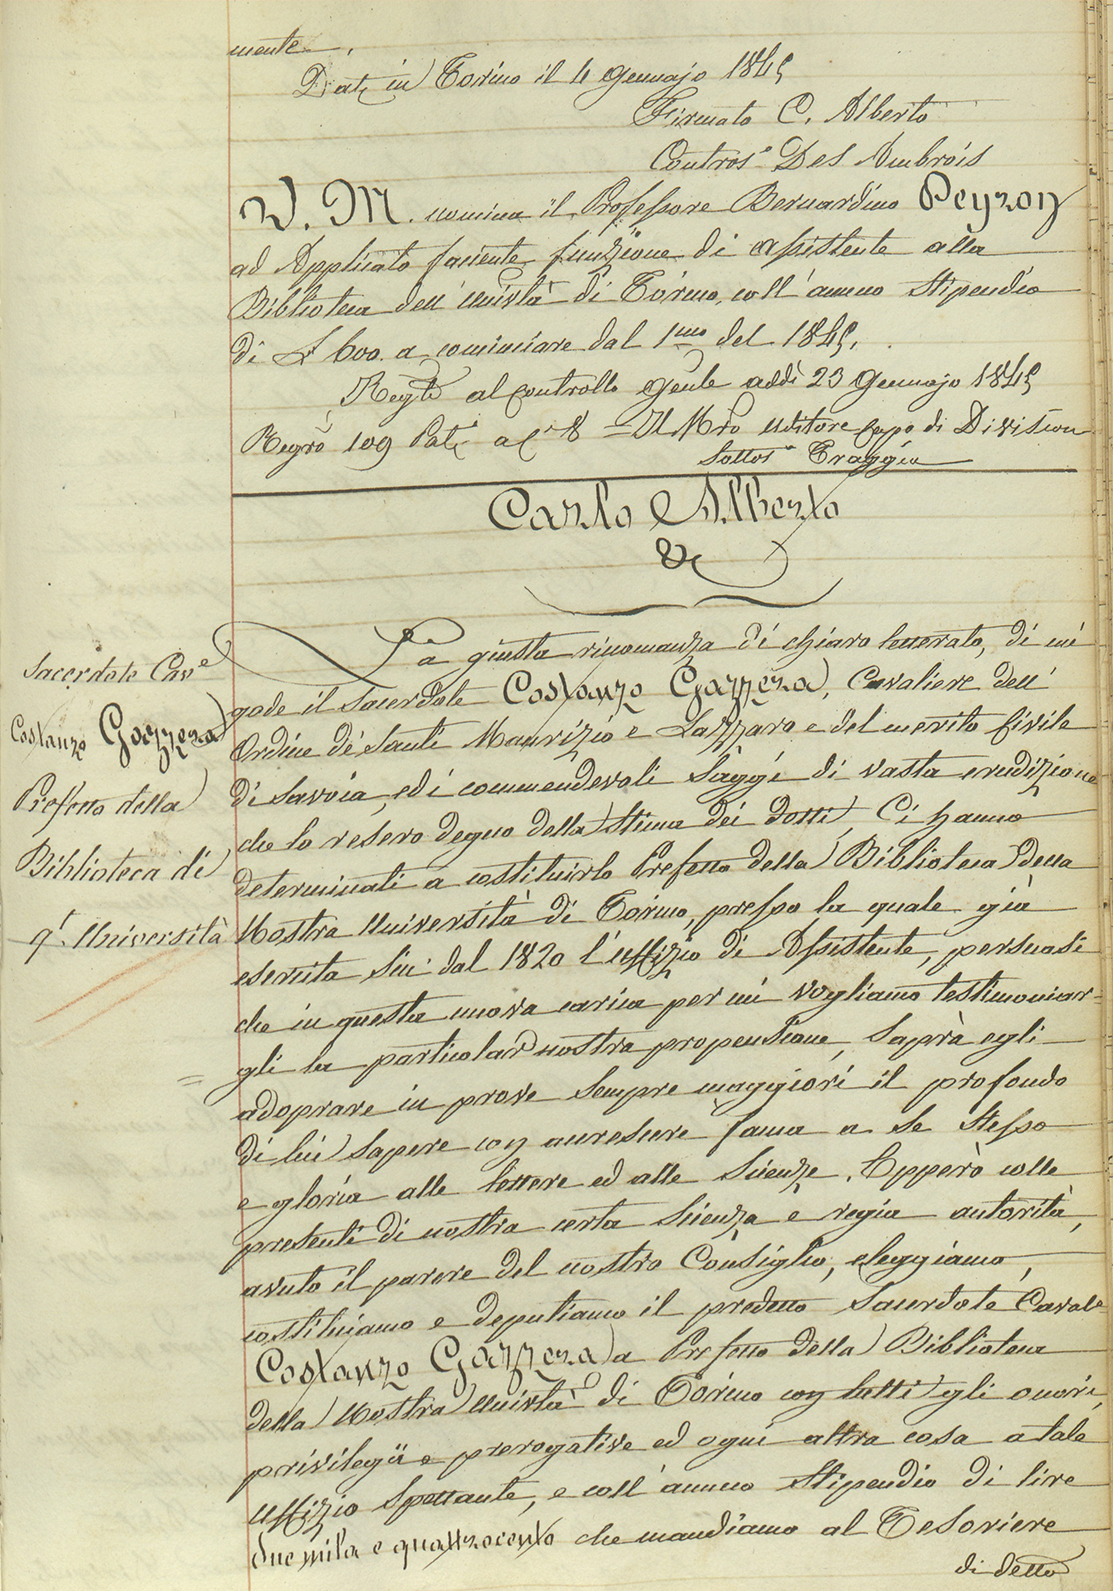 mente.
Dat. in Torino il 4 Gennajo 1845
Firmato C. Alberto
Contros.º Des Ambrois
V. M. nomina il Professore Bernardino Peyron
ad Applicato faciente funzione di assistente alla
Biblioteca dell'Univ.tà di Torino, coll'annuo Stipendio
di L. 600. a cominciare dal 1.mo del 1845.
Reg.to al controllo Gen.le addì 23 Gennajo 1845
Reg.ro 109 Pat.ti a c.e 8 = Il M.ro Uditore Capo di Division
Sottos.º Traggia
Carlo Alberto
&c
Sacerdote Cav.e
Costanzo Gazzera
Prefetto della
Biblioteca di
q.ta Università
La giusta rinomanza di chiaro letterato, di cui
gode il Sacerdote Costanzo Gazzera, Cavaliere dell'
Ordine de' Santi Maurizio e Lazzaro e del merito Civile
di Savoia, ed i commendevoli Saggi di vasta erudizione
che lo resero degno della Stima dei dotti, Ci hanno
determinati a costituirlo Prefetto della Biblioteca della
Nostra Università di Torino, presso la quale già
esercita sin dal 1820 l'uffizio di Assistente, persuasi
che in questa nuova carica per cui vogliamo testimoniar-
gli la particolar nostra propensione, saprà egli
adoprare in prove sempre maggiori il profondo
di lui sapere con accrescere fama a se Stesso
e gloria alle lettere ed alle Scienze. Epperò colle
presenti di nostra certa Scienza e regia autorità,
avuto il parere del nostro Consiglio, eleggiamo,
costituiamo e deputiamo il predetto Sacerdote Caval.e
Costanzo Gazzera a Prefetto della Biblioteca
della Nostra Univ.tà di Torino con tutti gli onori,
privilegii e prerogative ed ogni altra cosa a tale
Uffizio Spettante, e coll'annuo Stipendio di lire
due mila e quattrocento che mandiamo al Tesoriere
di detta